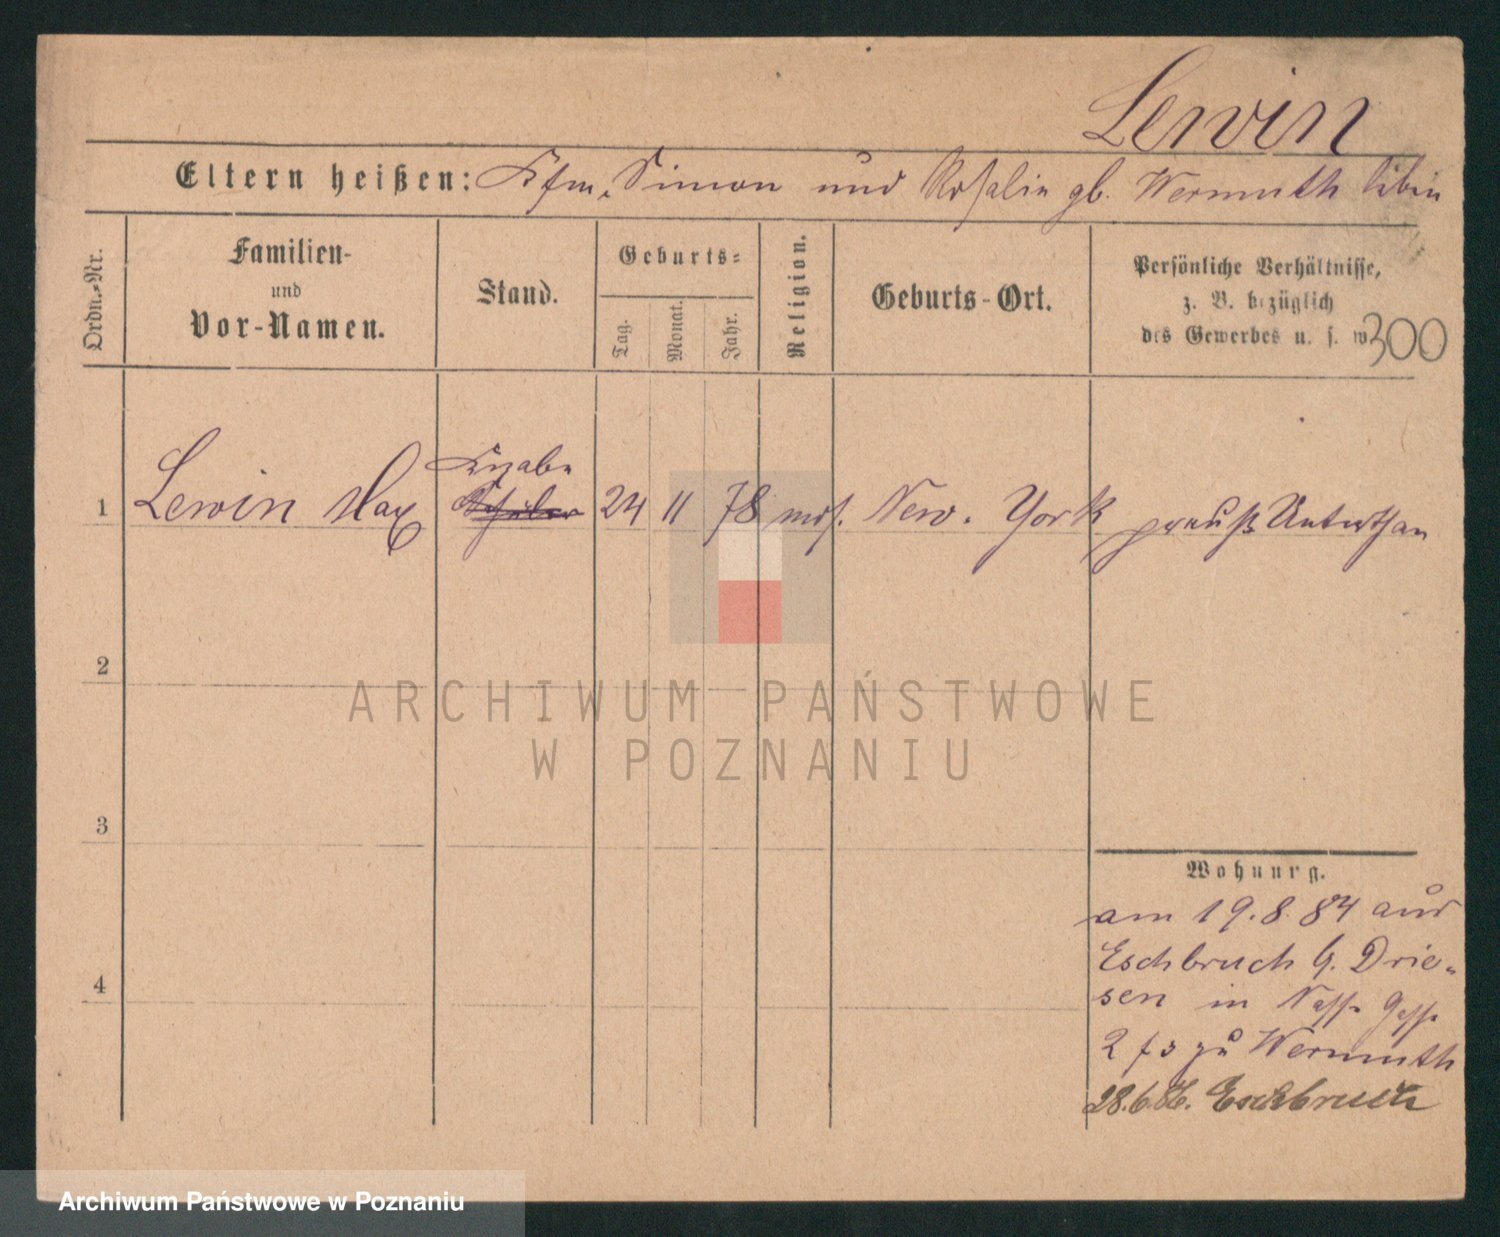 Lewin
Eltern heißen: Kfm. Simon und Rosalie gb. Wermuth
Ordn.-Nr.
Familien-
und
Vor-Namen.
Stand.
Geburts-
Tag.
Monat.
Jahr.
Religion.
Geburts-Ort.
Persönliche Verhältnisse,
z. B. bezüglich
des Gewerbes u. s. w.
300
Knabe
1 Lewin Max Schüler 24 11 78 mos. New-York preuß Unterthan
2
3
4
Wohnung.
am 19.8.84 aus
Eschbruch b. Drie-
sen in Nasse Gasse
2 zu Wermuth
28.6.86. Eschbruch
ARCHIWUM PAŃSTWOWE
W POZNANIU
Archiwum Państwowe w Poznaniu